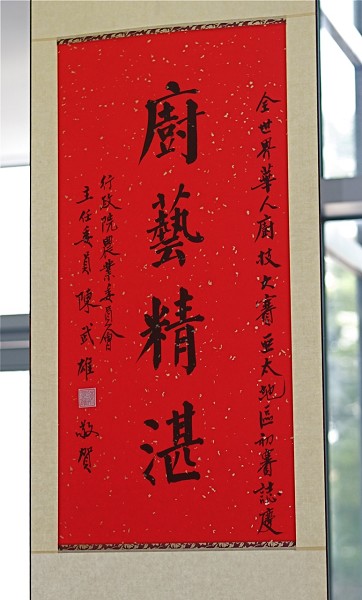 全世界華人廚技大賽亞太地區初賽誌慶
廚藝精湛
行政院農業委員會
主任委員 陳武雄 敬賀